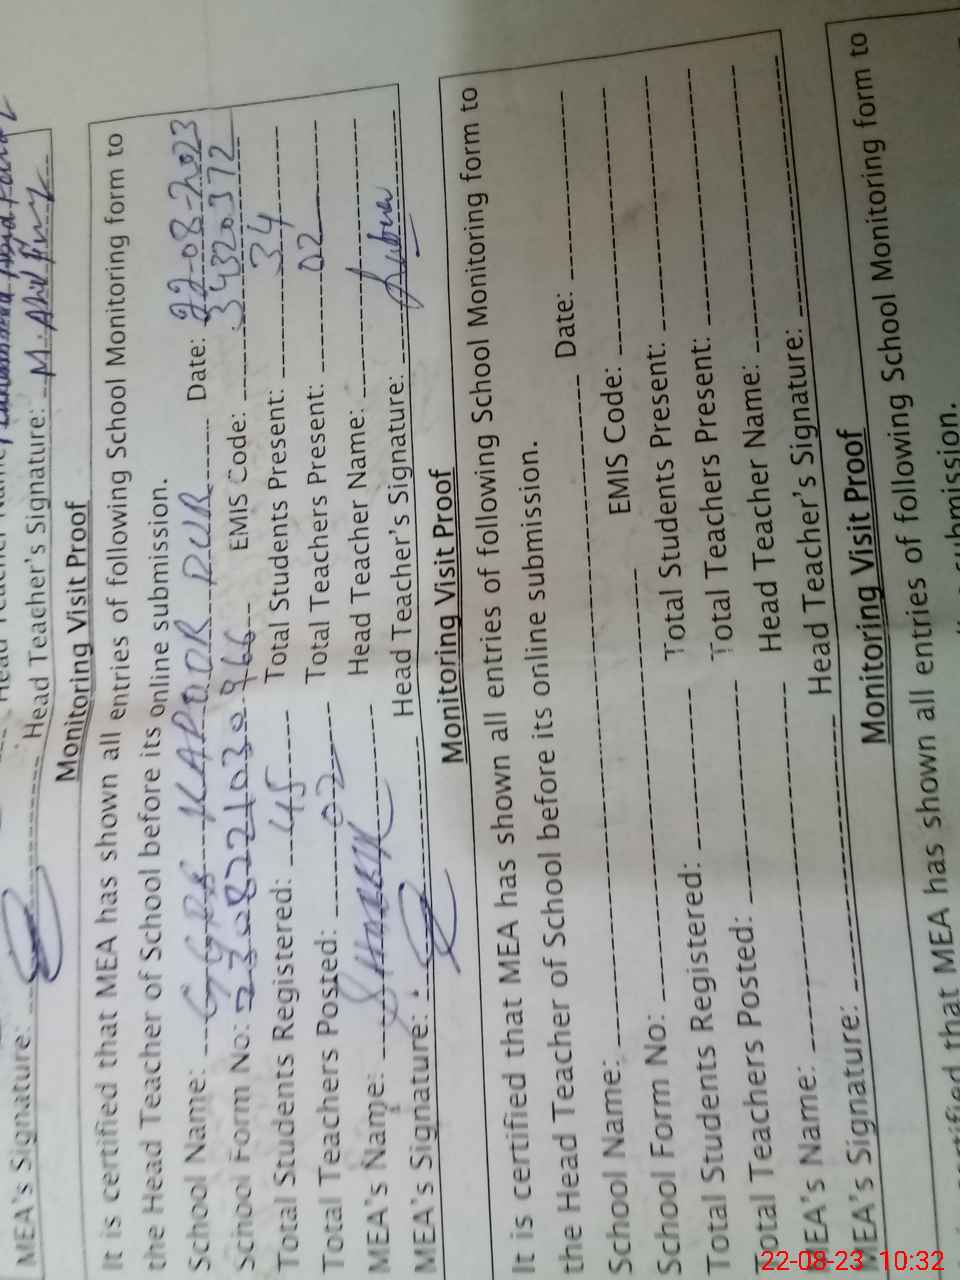 MEA's Signature: Head Teacher's Signature: M. Abid
Monitoring Visit Proof
It is certified that MEA has shown all entries of following School Monitoring form to
the Head Teacher of School before its online submission.
School Name: GGPS KAPOOR PUR Date: 22-08-2023
School Form No: 2308221030966 EMIS Code: 34320372
Total Students Registered: 45 Total Students Present: 34
Total Teachers Posted: 02 Total Teachers Present: 02
MEA's Name: Head Teacher Name:
MEA's Signature: Head Teacher's Signature:
Monitoring Visit Proof
It is certified that MEA has shown all entries of following School Monitoring form to
the Head Teacher of School before its online submission.
School Name: Date:
School Form No: EMIS Code:
Total Students Registered: Total Students Present:
Total Teachers Posted: Total Teachers Present:
MEA's Name: Head Teacher Name:
MEA's Signature: Head Teacher's Signature:
Monitoring Visit Proof
certified that MEA has shown all entries of following School Monitoring form to
submission.
22-08-23 10:32